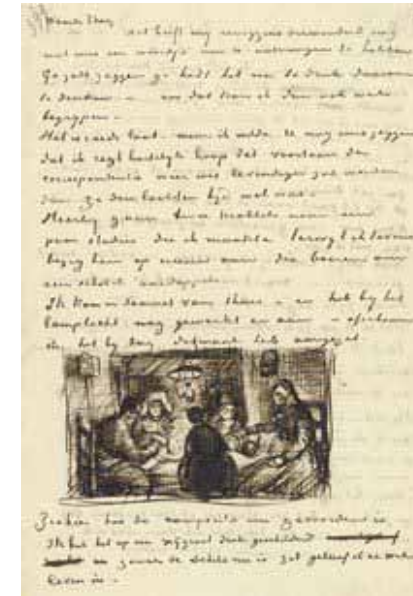 Waarde Theo,
het heeft mij eenigzins verwonderd nog
niet eens een woordje van U ontvangen te hebben
Ge zult zeggen ge hadt het te druk daarom
te denken – en dat kan ik dan ook wel
begrijpen –
Het is reeds laat maar ik wilde U nog eens zeggen
dat ik regt hartelijk hoop dat voortaan de
correspondentie weer wat levendiger zal worden
dan ze den laatsten tijd wel was –
een
paar studies die ik maakte terwijl ik tevens
bezig ben op nieuw aan die boeren om
een schotel aardappels
Ik kom daarnet van thuis – en heb bij het
lamplicht nog gewerkt er aan – ofschoon
ik het bij dag ditmaal heb aangezet
Zoohier hoe de compositie nu geworden is
Ik heb het op een vrij groot doek geschilderd
en zooals de schets nu is zat geloof ik er wel
leven in –